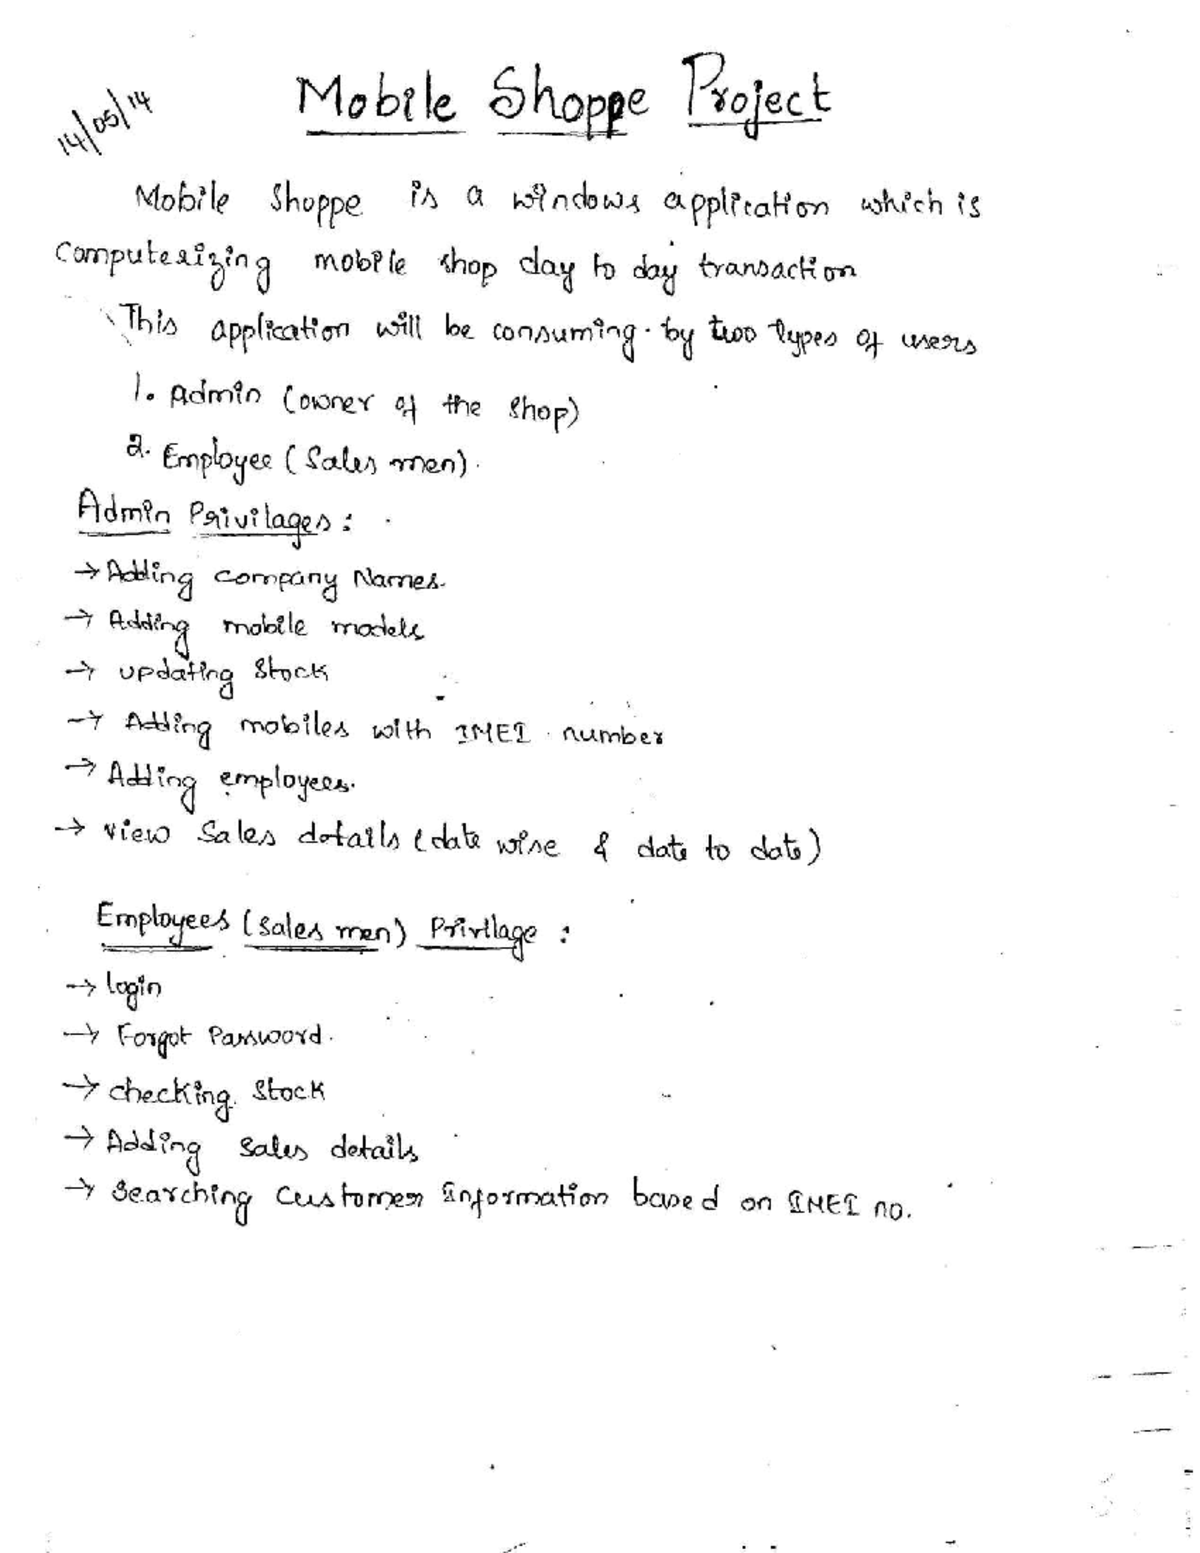 Mobile Shoppe Project
14/05/14
Mobile Shoppe is a windows application which is
Computerizing mobile shop day to day transaction
This application will be consuming by two types of users
1. Admin (owner of the shop)
2. Employee (Sales men).
Admin Privilages :
→ Adding company Names.
→ Adding mobile models
→ updating Stock
→ Adding mobiles with IMEI number
→ Adding employees.
→ view Sales details (date wise & date to date)
Employees (sales men) Privilage :
→ login
→ Forgot Password.
→ checking Stock
→ Adding sales details
→ Searching Customer Information based on IMEI no.